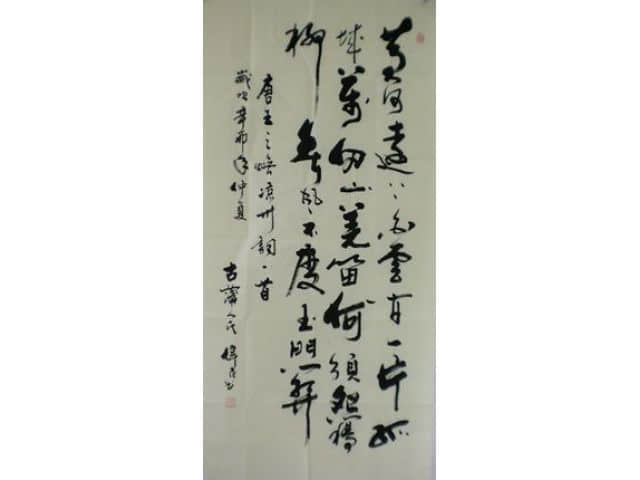 黄河遠上白雲间一片孤
城萬仞山羌笛何須怨楊
柳春風不度玉門關
唐王之焕凉州詞一首
歲次辛卯年仲夏
古蒲人氏